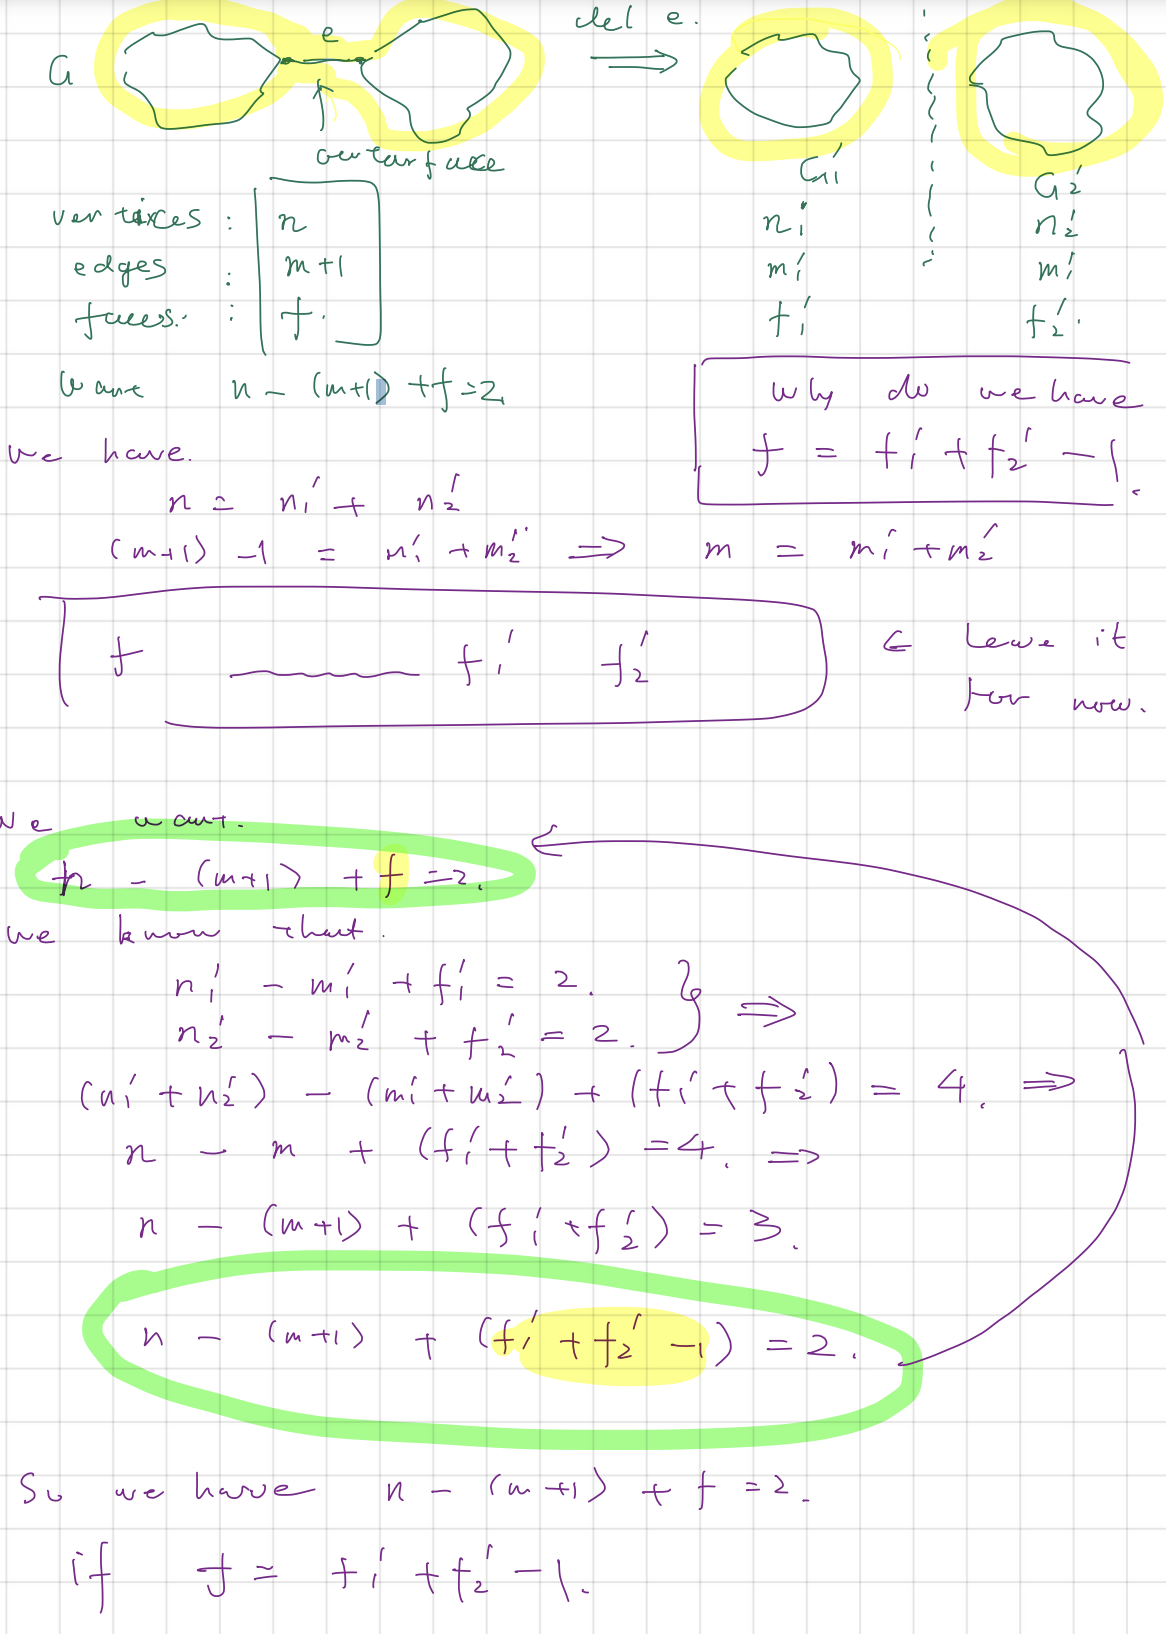 G e del e. ⟹
outerface
G₁' G₂'
vertices : n n₁' n₂'
edges : m+1 m₁' m₂'
faces. : f. f₁' f₂'.
Want n - (m+1) + f = 2
Why do we have
f = f₁' + f₂' - 1.
we have.
n = n₁' + n₂'
(m+1) - 1 = m₁' + m₂' ⟹ m = m₁' + m₂'
f f₁' f₂' ← leave it
for now.
we want.
n - (m+1) + f = 2.
we know that.
n₁' - m₁' + f₁' = 2. } ⟹
n₂' - m₂' + f₂' = 2.
(n₁' + n₂') - (m₁' + m₂') + (f₁' + f₂') = 4. ⟹
n - m + (f₁' + f₂') = 4. ⟹
n - (m+1) + (f₁' + f₂') = 3.
n - (m+1) + (f₁' + f₂' - 1) = 2.
So we have n - (m+1) + f = 2.
if f = f₁' + f₂' - 1.